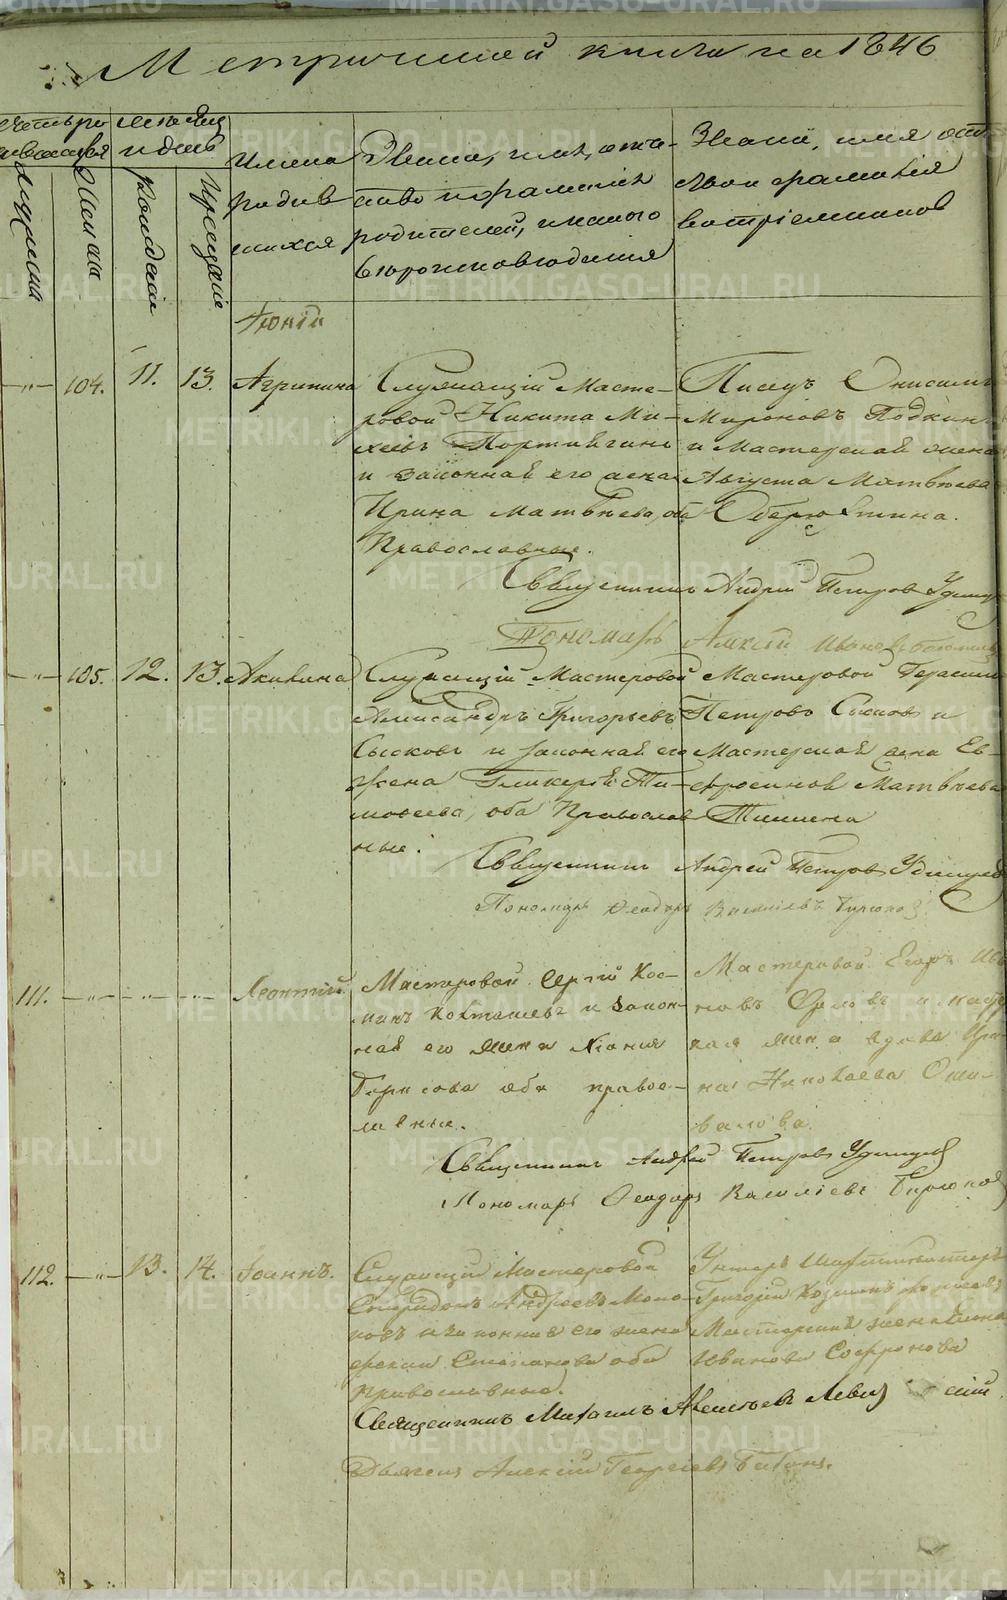 Метрической книги на 1846
Счетъ ро
дившихся
Мужеска
Женска
Месяцъ
и день
Рожденiе
Крещенiе
Имена
родив
шихся
Званiе, имя, отче-
ство и фамилiя
родителей, и какого
вѣроисповѣданiя
Званiе, имя отче
ство и фамилiя
воспрiемниковъ
Iюнiй
104. 11. 13. Агрипина
Служащiй Масте-
ровой Никита Ми-
хеевъ Портнягинъ
и законная его жена
Ирина Матвѣева, оба
Православные.
Писецъ Онисимъ
Мироновъ Подкин
и Мастерская жена
Августа Матвѣева
Оберюхтина.
Священникъ Андрей Петровъ Удинцов
Пономарь Алексiй Ивановъ
105. 12. 13. Акилина
Служащiй Мастеровой
Александръ Григорьевъ
Сысковъ и законная его
жена Гликерiя Ти-
мофеева, оба Православ
ные.
Мастеровой Герасимъ
Петровъ Сысковъ и
Мастерская жена Ев-
фросинья Матвѣева
Тишина
Священникъ Андрей Петровъ Удинцов
Пономарь Феодоръ Васильевъ Бирюков
111. Леонтiй
Мастеровой Сергiй Кос-
минъ Колташевъ и закон-
ная его жена Ксенiя
Борисова оба правос-
лавные.
Мастеровой Егоръ Ива
новъ Орловъ и мастер
кая жена вдова Ири-
на Николаева Оши-
валова.
Священникъ Андрей Петровъ Удинцов
Пономарь Феодоръ Васильевъ Бирюков
112. 13. 14. Iоаннъ.
Служащiй Мастеровой
Спиридонъ Андреевъ Мока-
ровъ и законная его жена
Фекла Степанова оба
православные.
Унтеръ Шихтмейстеръ
Григорiй Козминъ
Мастерская жена Елена
Иванова Софронова
Священникъ Михаилъ Алексѣевъ Левицкiй
Дьячекъ Алексiй Георгiевъ Бабинъ.
METRIKI.GASO-URAL.RU